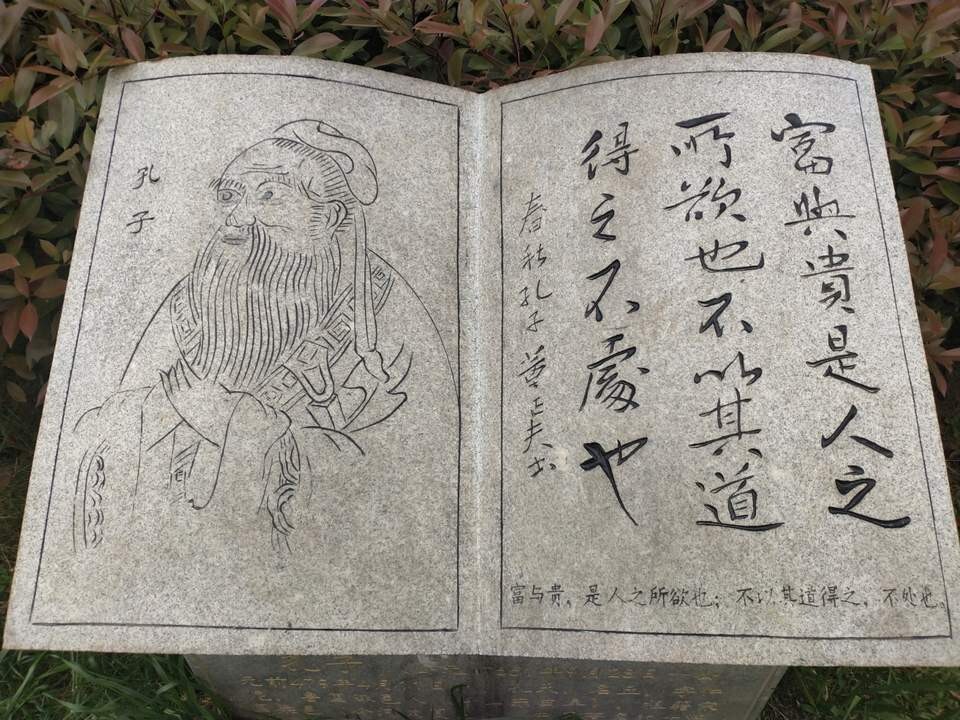 孔子
富與貴是人之
所欲也不以其道
得之不處也
春秋孔子 正夫书
富与贵，是人之所欲也；不以其道得之，不处也。